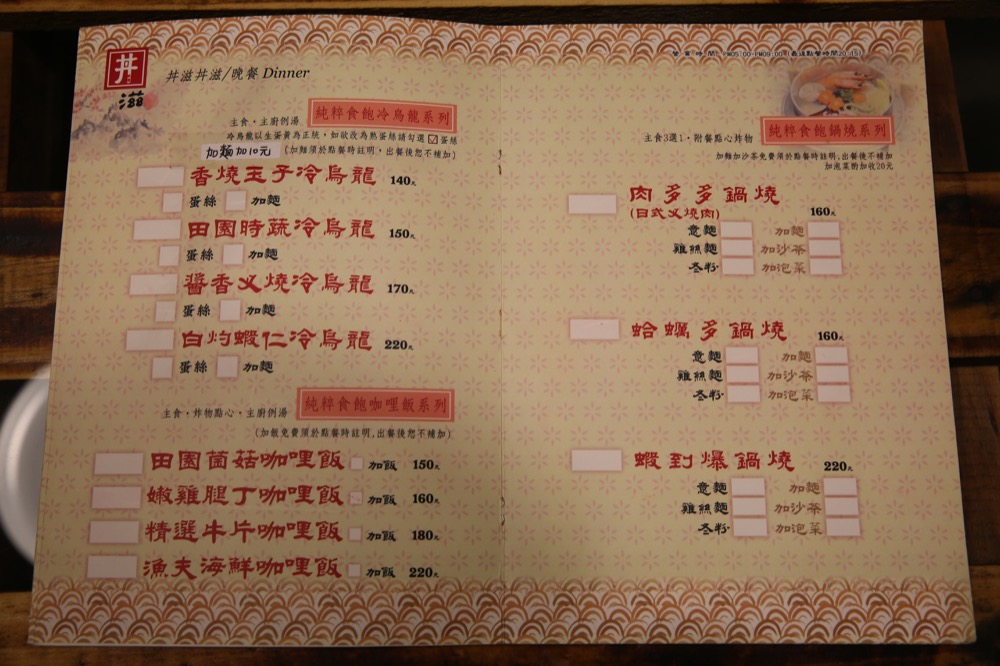 丼
滋
丼滋丼滋/晚餐 Dinner
純粹食飽冷烏龍系列
主食・主廚例湯
冷烏龍以生蛋黃為正統，如欲改為熟蛋絲請勾選 蛋絲
加麵加10元
(加麵須於點餐時註明，出餐後恕不補加)
香燒玉子冷烏龍 140元
蛋絲 加麵
田園時蔬冷烏龍 150元
蛋絲 加麵
醬香叉燒冷烏龍 170元
蛋絲 加麵
白灼蝦仁冷烏龍 220元
蛋絲 加麵
純粹食飽咖哩飯系列
主食・炸物點心・主廚例湯
(加飯免費須於點餐時註明,出餐後恕不補加)
田園菌菇咖哩飯 加飯 150元
嫩雞腿丁咖哩飯 加飯 160元
精選牛片咖哩飯 加飯 180元
漁夫海鮮咖哩飯 加飯 220元
營業時間 PM05:00-PM09:00 (最後點餐時間20:15)
純粹食飽鍋燒系列
主食3選1・附餐點心炸物
加麵加沙茶免費須於點餐時註明,出餐後恕不補加
加泡菜酌加收20元
肉多多鍋燒
(日式叉燒肉) 160元
意麵 加麵
雞絲麵 加沙茶
冬粉 加泡菜
蛤蠣多鍋燒 160元
意麵 加麵
雞絲麵 加沙茶
冬粉 加泡菜
蝦到爆鍋燒 220元
意麵 加麵
雞絲麵 加沙茶
冬粉 加泡菜